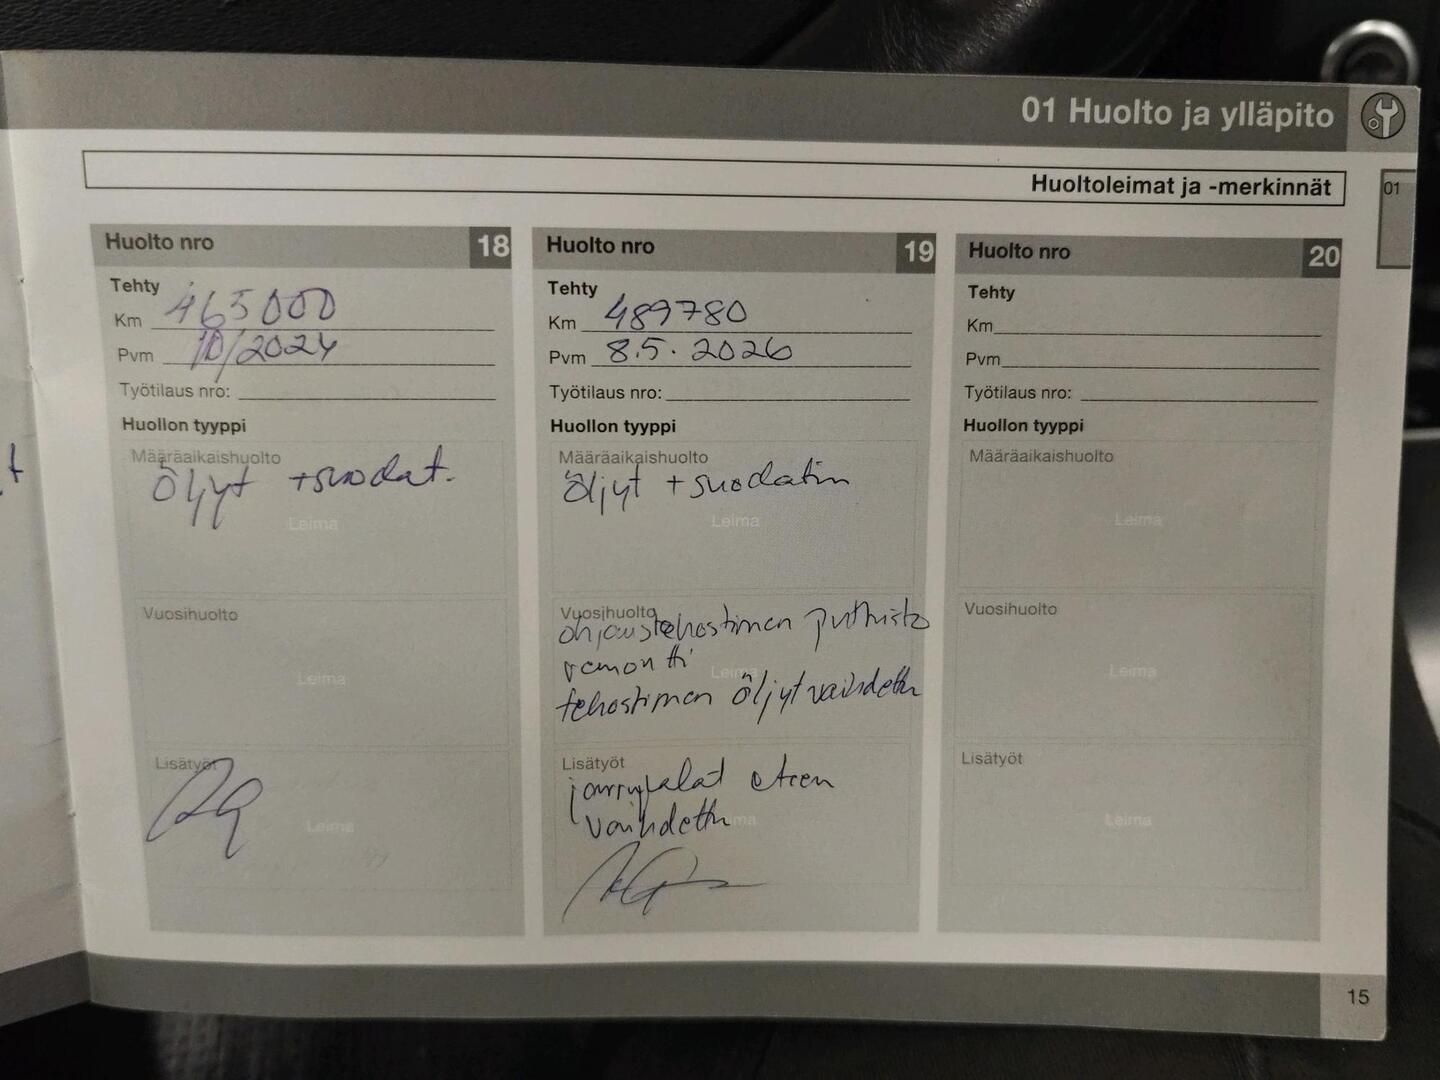 01 Huolto ja ylläpito
Huoltoleimat ja -merkinnät
01
Huolto nro 18
Tehty
Km 465000
Pvm 10/2024
Työtilaus nro:
Huollon tyyppi
Määräaikaishuolto
Öljyt + suodat.
Leima
Vuosihuolto
Leima
Lisätyöt
Leima
Huolto nro 19
Tehty
Km 489780
Pvm 8.5. 2026
Työtilaus nro:
Huollon tyyppi
Määräaikaishuolto
öljyt + suodatin
Leima
Vuosihuolto
ohjaustehostimen putkisto
remontti
Leima
tehostimen öljyt vaihdettu
Lisätyöt
jarrupalat eteen
vaihdettu
Leima
Huolto nro 20
Tehty
Km
Pvm
Työtilaus nro:
Huollon tyyppi
Määräaikaishuolto
Leima
Vuosihuolto
Leima
Lisätyöt
Leima
15